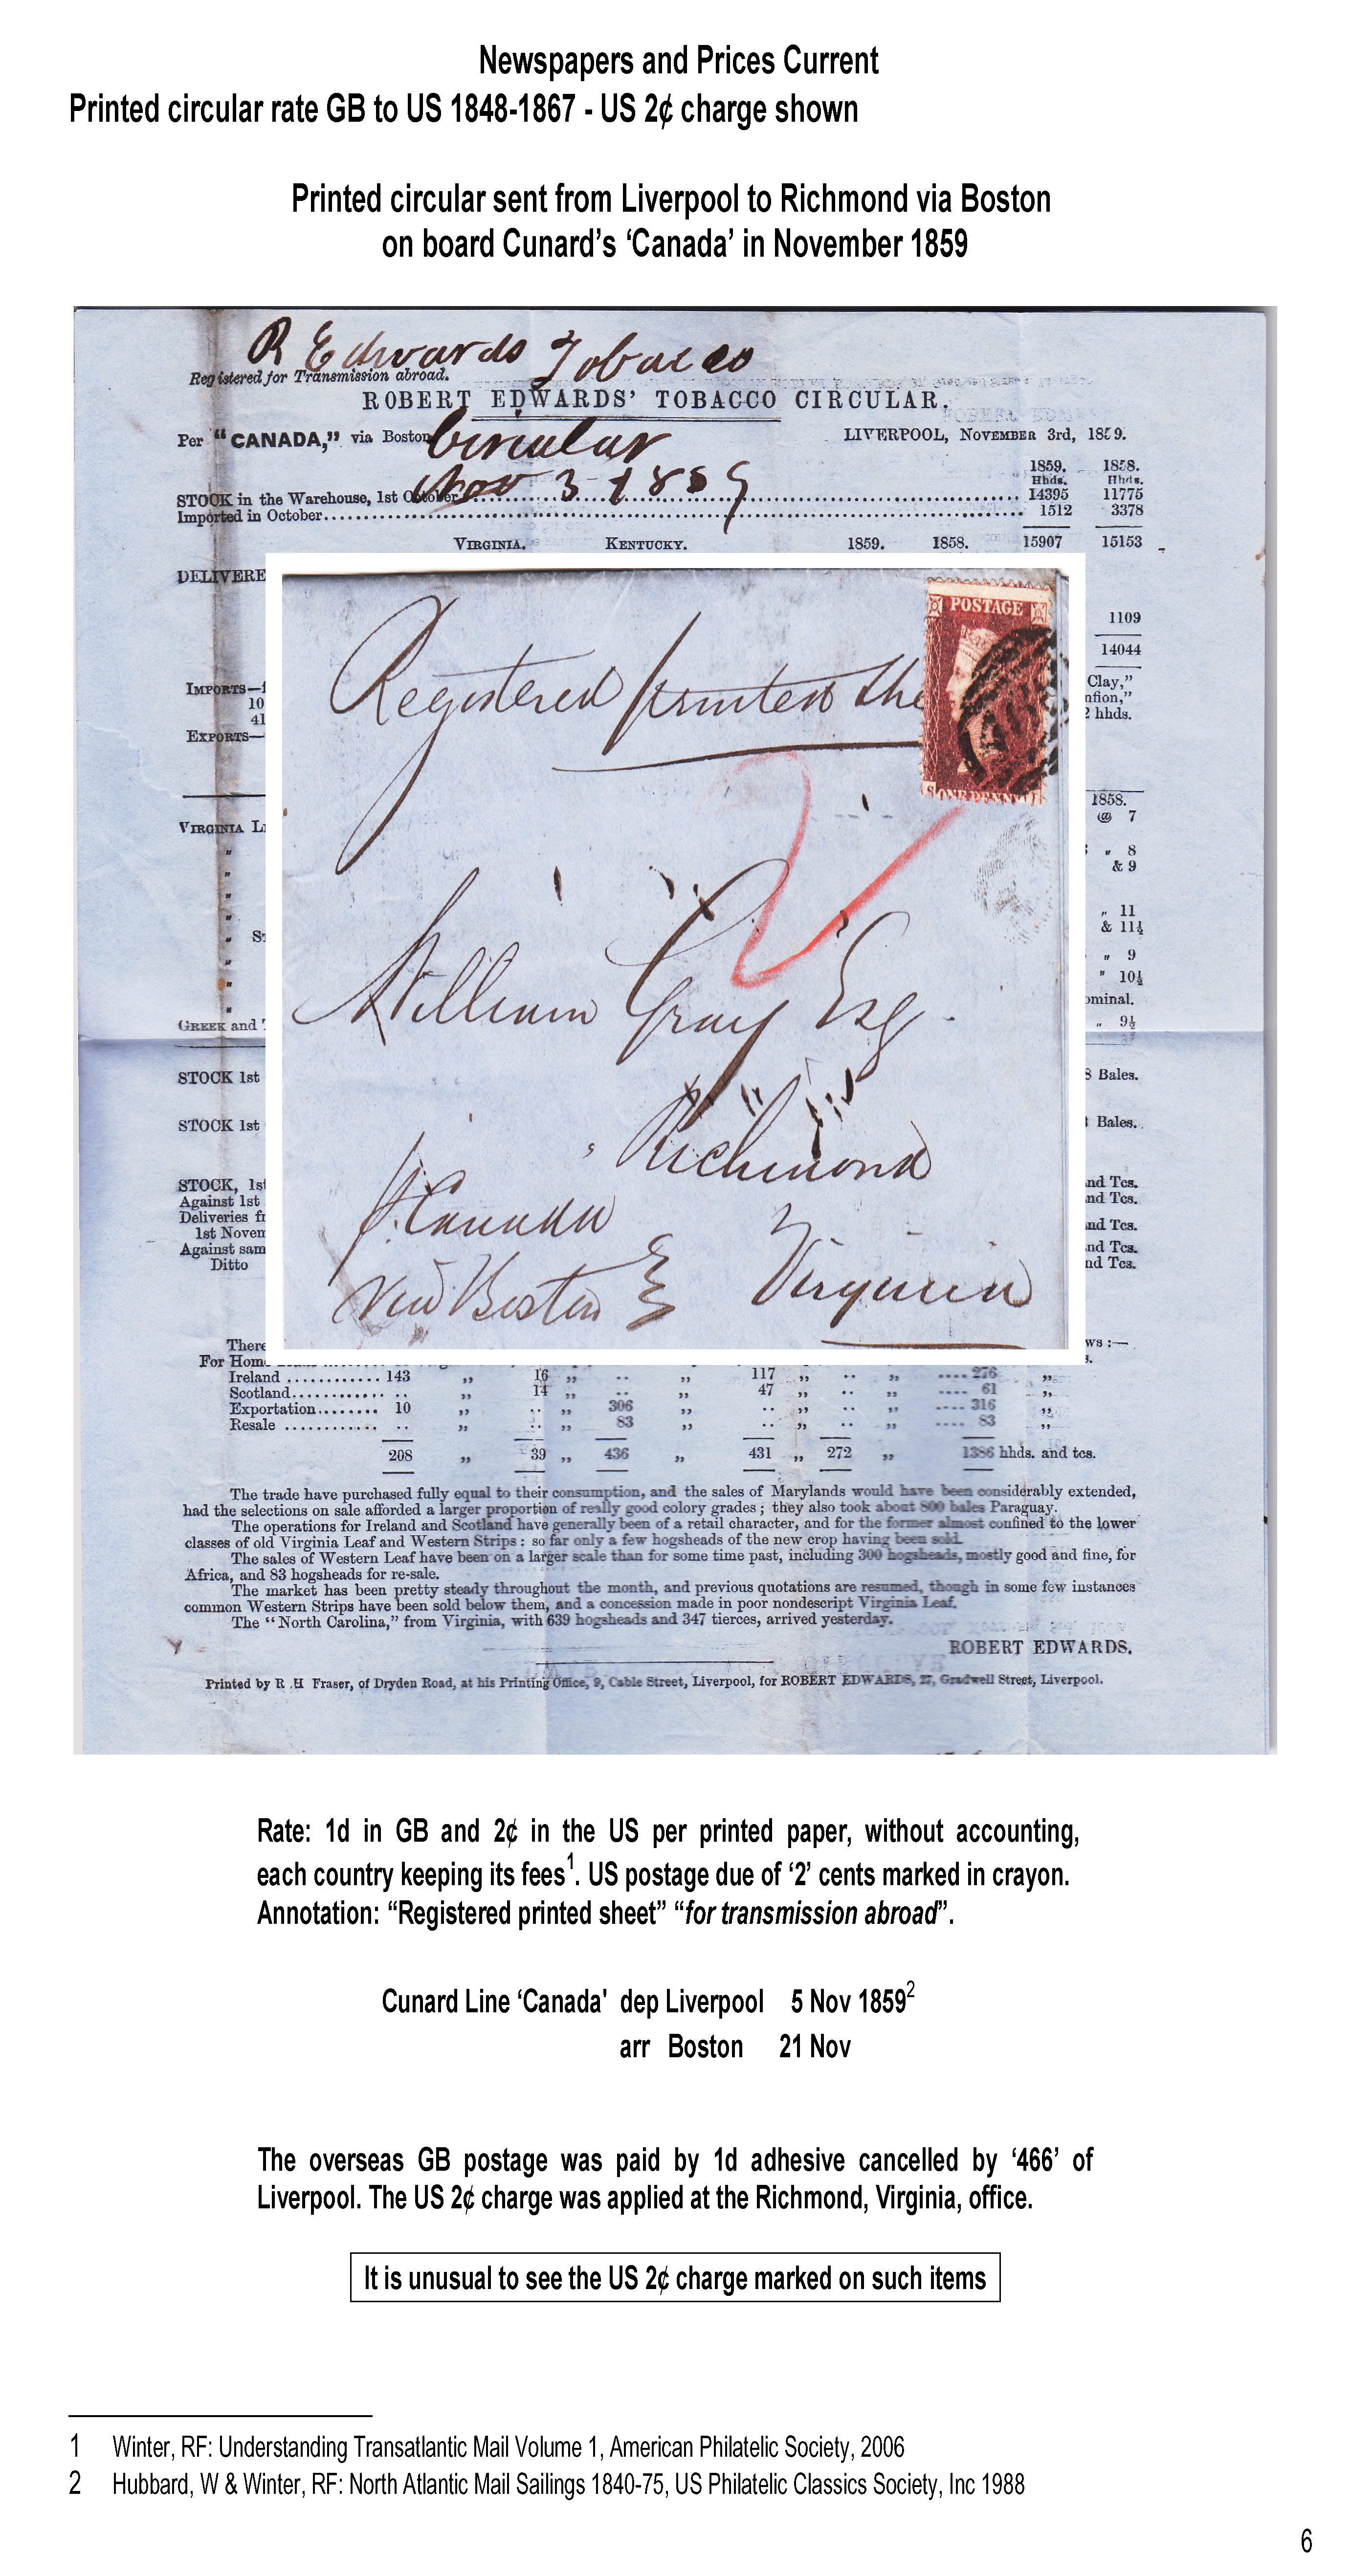 Newspapers and Prices Current
Printed circular rate GB to US 1848-1867 - US 2¢ charge shown
Printed circular sent from Liverpool to Richmond via Boston
on board Cunard’s ‘Canada’ in November 1859
R Edwards Tobacco
Registered for Transmission abroad.
ROBERT EDWARDS’ TOBACCO CIRCULAR.
Per “CANADA,” via Boston
Circular
LIVERPOOL, NOVEMBER 3rd, 1859.
Nov 3 1859
1859. 1858.
Hhds. Hhds.
STOCK in the Warehouse, 1st October 14395 11775
Imported in October 1512 3378
VIRGINIA. KENTUCKY. 1859. 1858. 15907 15153
DELIVERE
1109
14044
IMPORTS— Clay,”
10
41 hhds.
EXPORTS—
1858.
VIRGINIA @ 7
„ „ 8
„ & 9
„
„ „ 11
„ & 11½
„ „ 9
„ " 10½
„
GREEK and „ 9½
STOCK 1st Bales.
STOCK 1st Bales.
STOCK, 1st and Tcs.
Against 1st and Tcs.
Deliveries
1st Novem and Tcs.
Against sam and Tcs.
Ditto and Tcs.
Registered printed she
POSTAGE
ONE PENNY
2
William Gray Esq
Richmond
p. Canada
via Boston
Virginia
There ws :—
For Hom
Ireland ............ 143 „ 16 „ .. „ 117 „ .. „ .... 276 „
Scotland............ .. „ 14 „ .. „ 47 „ .. „ .... 61 „
Exportation........ 10 „ .. „ 306 „ .. „ .. „ .... 316 „
Resale ............ .. „ .. „ 83 „ .. „ .. „ .... 83 „
208 „ 39 „ 436 „ 431 „ 272 „ 1386 hhds. and tcs.
The trade have purchased fully equal to their consumption, and the sales of Marylands would have been considerably extended,
had the selections on sale afforded a larger proportion of really good colory grades ; they also took about 800 bales Paraguay.
The operations for Ireland and Scotland have generally been of a retail character, and for the former almost confined to the lower
classes of old Virginia Leaf and Western Strips : so far only a few hogsheads of the new crop having been sold.
The sales of Western Leaf have been on a larger scale than for some time past, including 300 hogsheads, mostly good and fine, for
Africa, and 83 hogsheads for re-sale.
The market has been pretty steady throughout the month, and previous quotations are resumed, though in some few instances
common Western Strips have been sold below them, and a concession made in poor nondescript Virginia Leaf.
The “North Carolina,” from Virginia, with 639 hogsheads and 347 tierces, arrived yesterday.
ROBERT EDWARDS.
Printed by R .H Fraser, of Dryden Road, at his Printing Office, 9, Cable Street, Liverpool, for ROBERT EDWARDS, 27, Gradwell Street, Liverpool.
Rate: 1d in GB and 2¢ in the US per printed paper, without accounting,
each country keeping its fees1. US postage due of ‘2’ cents marked in crayon.
Annotation: “Registered printed sheet” “for transmission abroad”.
Cunard Line ‘Canada' dep Liverpool 5 Nov 18592
arr Boston 21 Nov
The overseas GB postage was paid by 1d adhesive cancelled by ‘466’ of
Liverpool. The US 2¢ charge was applied at the Richmond, Virginia, office.
It is unusual to see the US 2¢ charge marked on such items
1 Winter, RF: Understanding Transatlantic Mail Volume 1, American Philatelic Society, 2006
2 Hubbard, W & Winter, RF: North Atlantic Mail Sailings 1840-75, US Philatelic Classics Society, Inc 1988
6